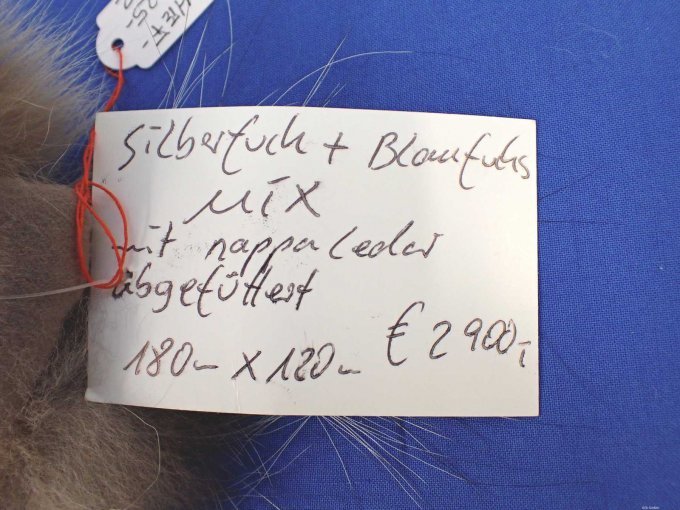 Silberfuch + Blaufuchs
MIX
mit nappa Leder
abgefüttert
180cm x 120cm € 2900,-